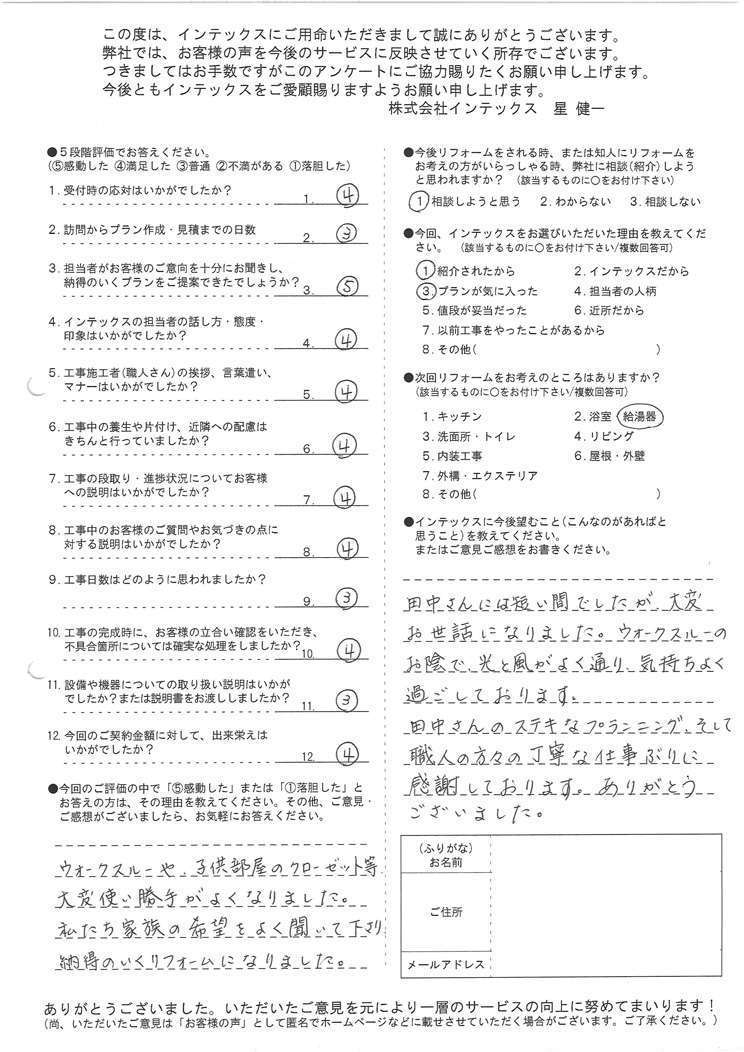 この度は、インテックスにご用命いただきまして誠にありがとうございます。
弊社では、お客様の声を今後のサービスに反映させていく所存でございます。
つきましてはお手数ですがこのアンケートにご協力賜りたくお願い申し上げます。
今後ともインテックスをご愛顧賜りますようお願い申し上げます。
株式会社インテックス 星 健一
●5段階評価でお答えください。
(⑤感動した ④満足した ③普通 ②不満がある ①落胆した)
1. 受付時の応対はいかがでしたか?
1. ④
2. 訪問からプラン作成・見積までの日数
2. ③
3. 担当者がお客様のご意向を十分にお聞きし、
納得のいくプランをご提案できたでしょうか?
3. ⑤
4. インテックスの担当者の話し方・態度・
印象はいかがでしたか?
4. ④
5. 工事施工者(職人さん)の挨拶、言葉遣い、
マナーはいかがでしたか?
5. ④
6. 工事中の養生や片付け、近隣への配慮は
きちんと行っていましたか?
6. ④
7. 工事の段取り・進捗状況についてお客様
への説明はいかがでしたか?
7. ④
8. 工事中のお客様のご質問やお気づきの点に
対する説明はいかがでしたか?
8. ④
9. 工事日数はどのように思われましたか?
9. ③
10. 工事の完成時に、お客様の立合い確認をいただき、
不具合箇所については確実な処理をしましたか?
10. ④
11. 設備や機器についての取り扱い説明はいかが
でしたか?または説明書をお渡ししましたか?
11. ③
12. 今回のご契約金額に対して、出来栄えは
いかがでしたか?
12. ④
●今回のご評価の中で「⑤感動した」または「①落胆した」と
お答えの方は、その理由を教えてください。その他、ご意見・
ご感想がございましたら、お気軽にお答えください。
ウォークスルーや、子供部屋のクローゼット等
大変使い勝手がよくなりました。
私たち家族の希望をよく聞いて下さり
納得のいくリフォームになりました。
●今後リフォームをされる時、または知人にリフォームを
お考えの方がいらっしゃる時、弊社に相談(紹介)しよう
と思われますか? (該当するものに○をお付け下さい)
①相談しようと思う 2. わからない 3. 相談しない
●今回、インテックスをお選びいただいた理由を教えてくだ
さい。 (該当するものに○をお付け下さい/複数回答可)
①紹介されたから 2. インテックスだから
③プランが気に入った 4. 担当者の人柄
5. 値段が妥当だった 6. 近所だから
7. 以前工事をやったことがあるから
8. その他( )
●次回リフォームをお考えのところはありますか?
(該当するものに○をお付け下さい/複数回答可)
1. キッチン 2. 浴室 給湯器
3. 洗面所・トイレ 4. リビング
5. 内装工事 6. 屋根・外壁
7. 外構・エクステリア
8. その他( )
●インテックスに今後望むこと(こんなのがあればと
思うこと)を教えてください。
またはご意見ご感想をお書きください。
田中さんには短い間でしたが、大変
お世話になりました。ウォークスルーの
お陰で、光と風がよく通り、気持ちよく
過ごしております。
田中さんのステキなプランニング、そして
職人の方々の丁寧な仕事ぶりに
感謝しております。ありがとう
ございました。
(ふりがな)
お名前
ご住所
メールアドレス
ありがとうございました。いただいたご意見を元により一層のサービスの向上に努めてまいります!
(尚、いただいたご意見は「お客様の声」として匿名でホームページなどに載せさせていただく場合がございます。ご了承ください。)